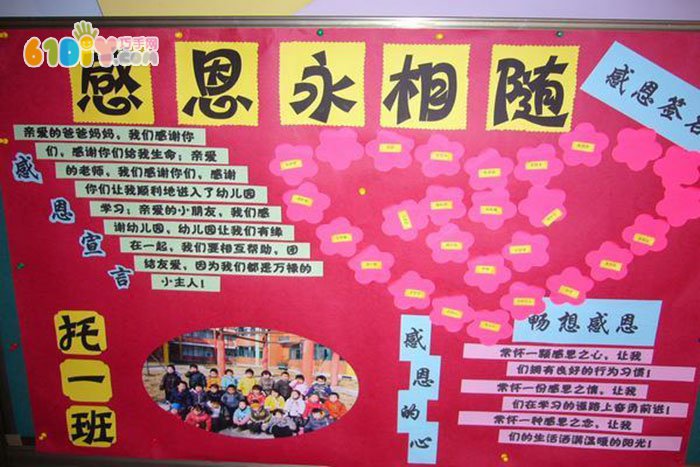 610DIY巧手网
.com
感恩永相随
感恩签名
感恩宣言
亲爱的爸爸妈妈，我们感谢你
们，感谢你们给我生命；亲爱
的老师，我们感谢你们，感谢
你们让我顺利地进入了幼儿园
学习；亲爱的小朋友，我们感
谢幼儿园，幼儿园让我们有缘
在一起，我们要相互帮助，团
结友爱，因为我们都是万禄的
小主人！
托一班
感恩的心
畅想感恩
常怀一颗感恩之心，让我
们拥有良好的行为习惯！
常怀一份感恩之情，让我
们在学习的道路上奋勇前进！
常怀一种感恩之恋，让我
们的生活洒满温暖的阳光！